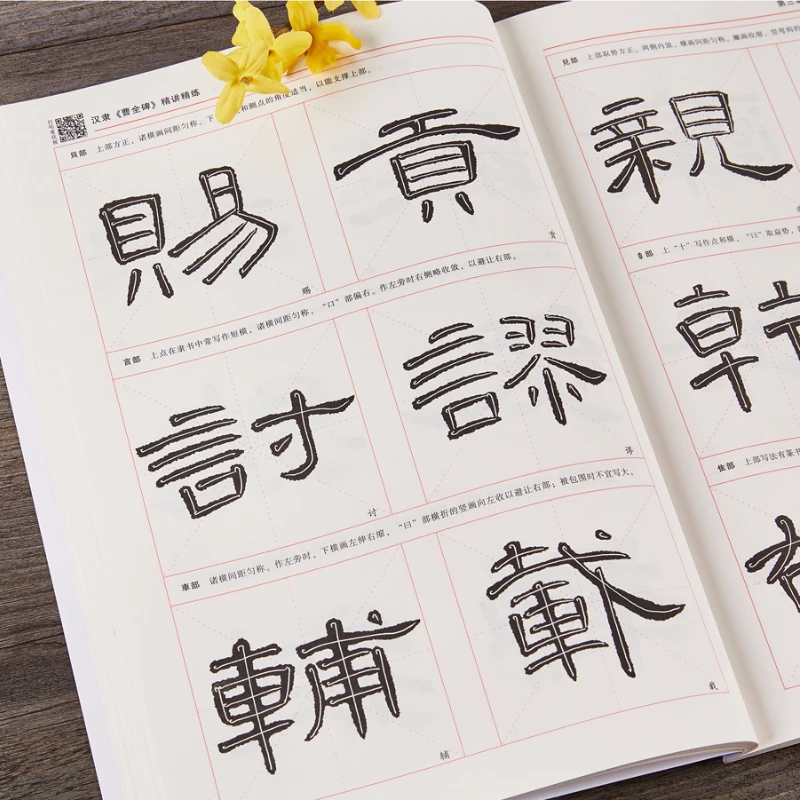 汉隶《曹全碑》精讲精练
貝部 上部方正,诸横画间距匀称。下 和侧点的角度适当,以能支撑上部。
賜 貢
赐 贡
言部 上点在隶书中常写作短横,诸横间距匀称,“口”部偏右。作左旁时右侧略收敛,以避让右部。
討 謬
讨 谬
車部 诸横间距匀称。作左旁时,下横画左伸右缩,“曰”部横折的竖画向左收以避让右部;被包围时不宜写大。
輔 載
辅 载
第三
見部 上部取势方正,两侧内敛,横画间距匀称。撇画收缩,竖弯钩的
親
上“十”写作点和横,“曰”取扁势,
隹部 上部写法有篆书